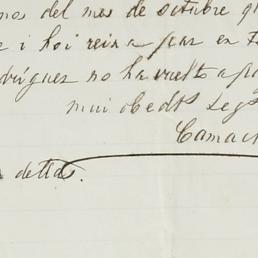 nos del mes de octubre q
e i hoi reina paz en
odriguez no ha vuelto a pa
mui obedte Segо
Camac
detta